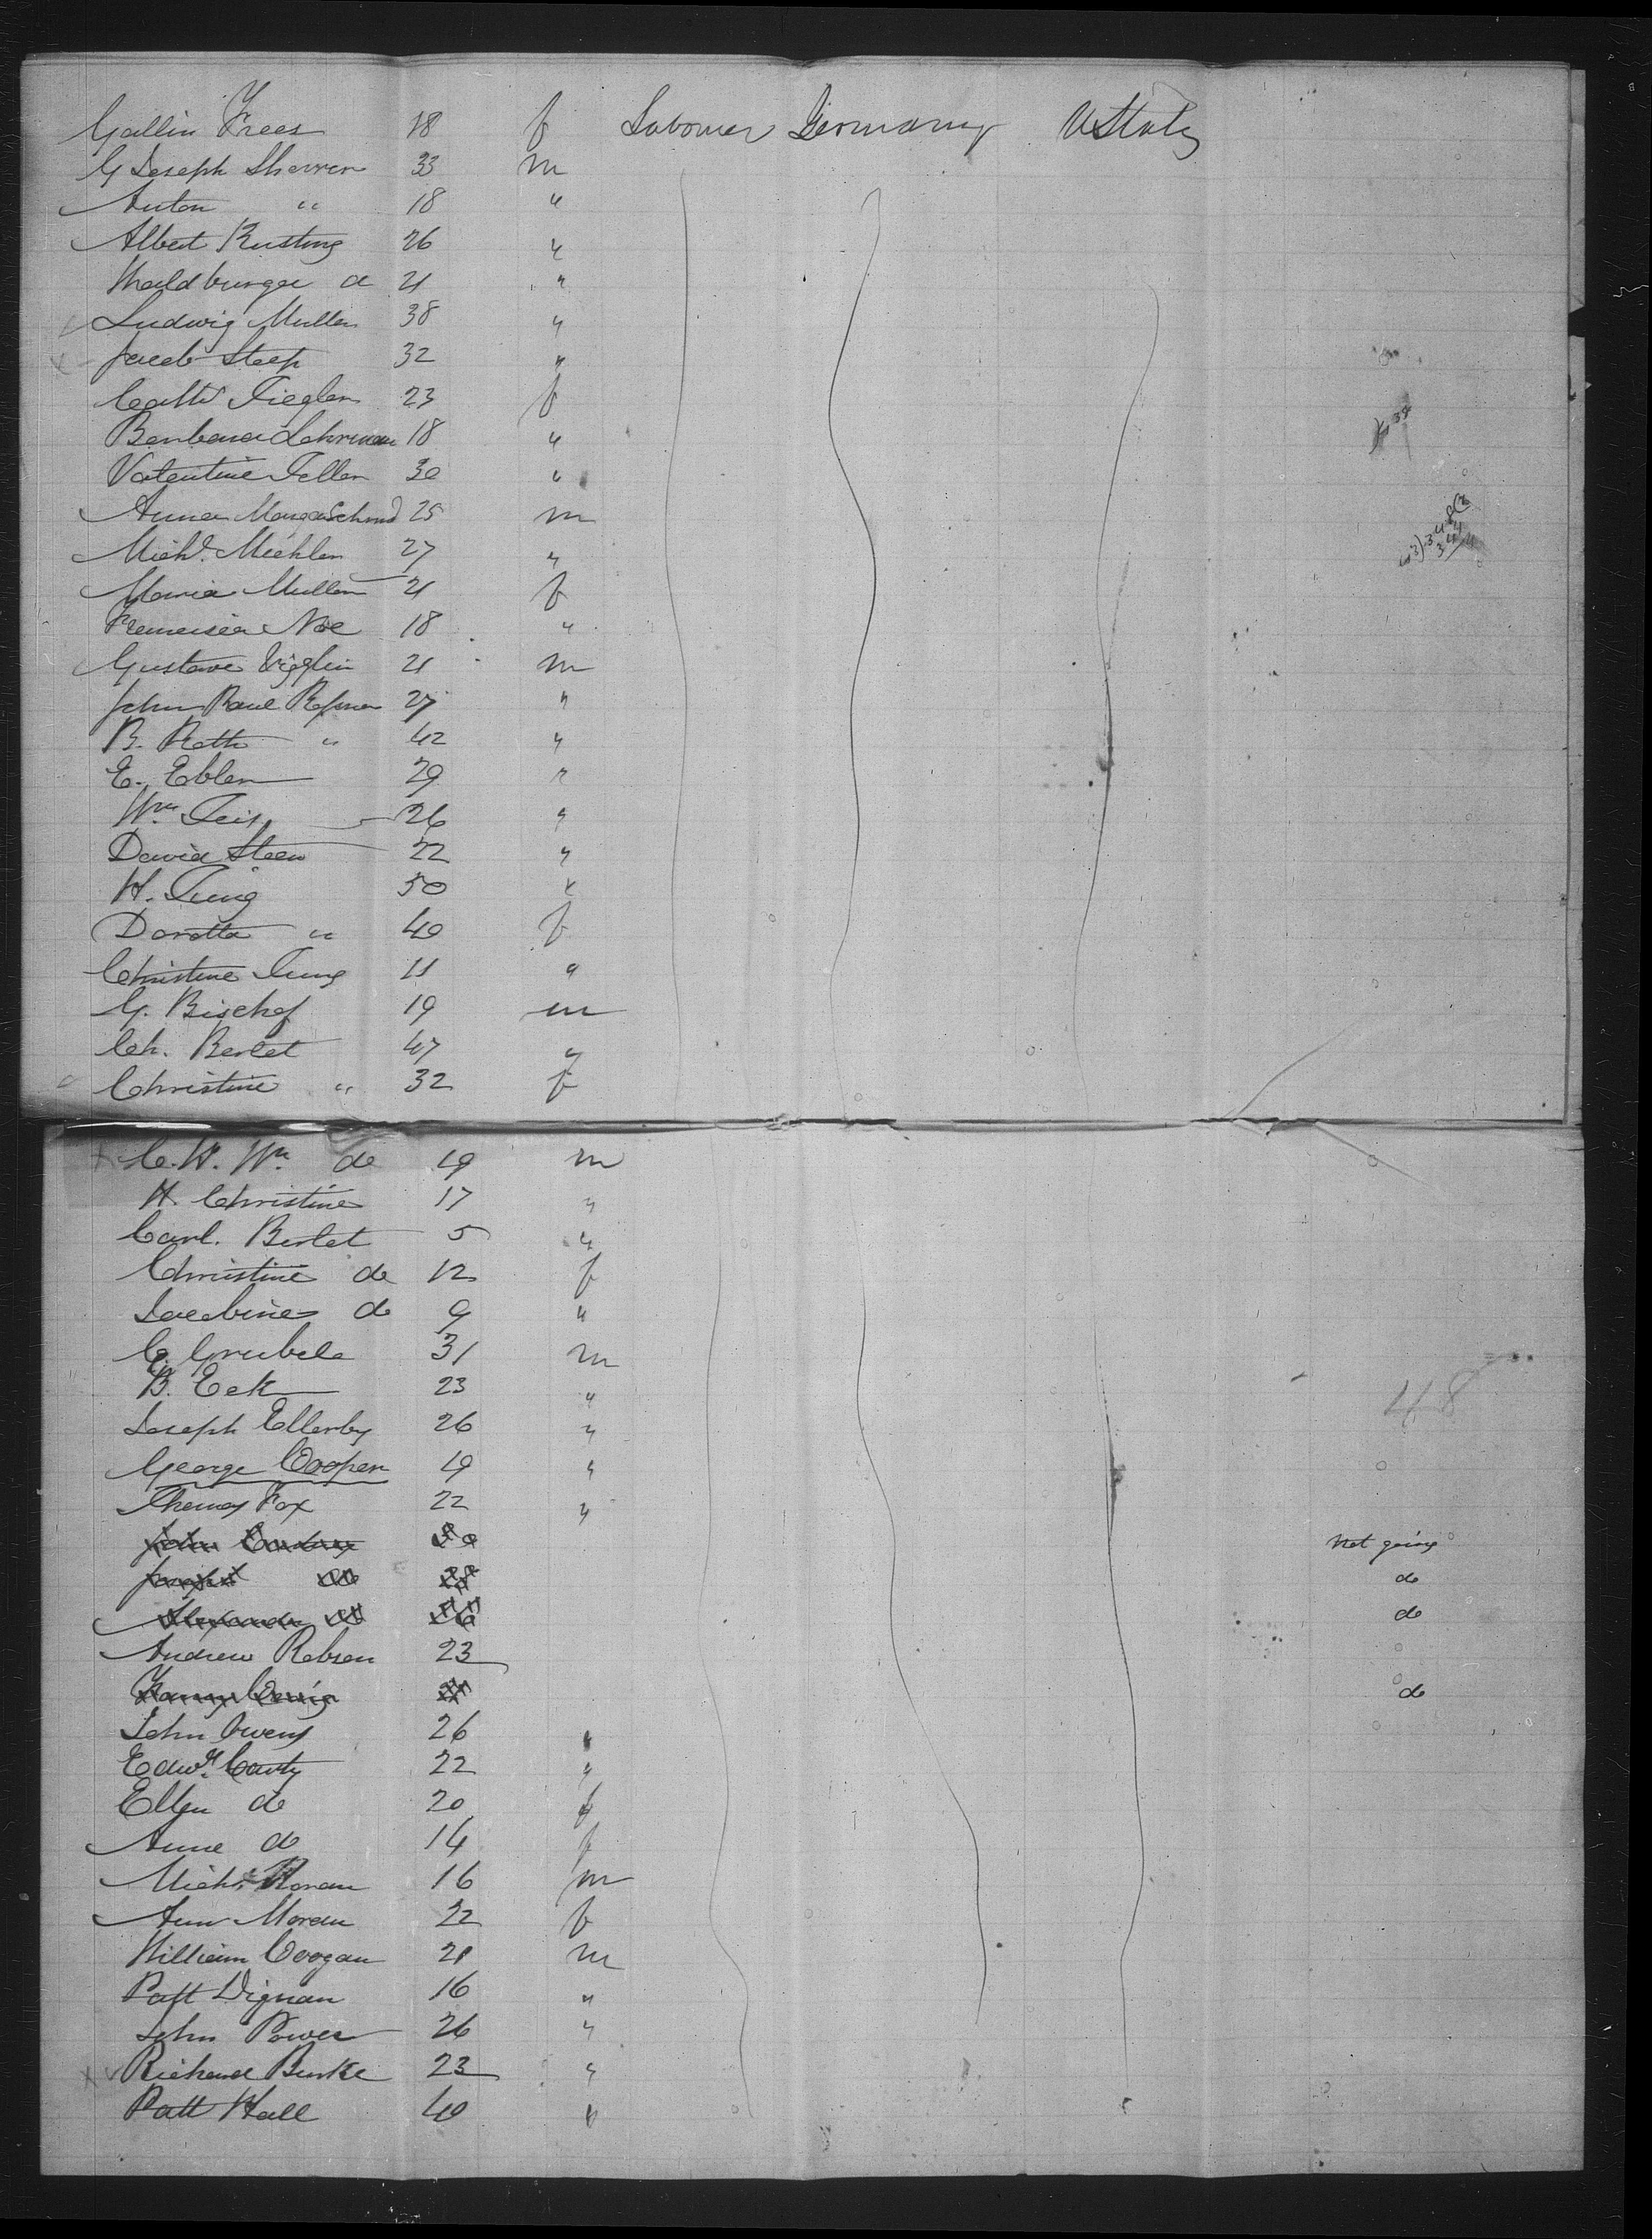 Gallin Frees 18 f Labourer Germany UStates
G Joseph Sherrer 33 m
Anton " 18 "
Albert Rusting 26 "
Waldburger d 21 "
Ludwig Muller 38 "
Jacob Steep 32 "
Cath Ziegler 23 f
Barbara Lehrman 18 "
Valentine Feller 30 "
Anna Marga Schmid 25 m
Michl. Michler 27 "
Maria Muller 21 f
Francisca Noe 18 "
Gustave Vigglin 21 m
John Paul 27 "
B. Roth " 42 "
E. Ebler 29 "
Wm. Feis 26 "
David Steen 22 "
H. Jung 50 "
Doretta " 40 f
Christine Jung 11 "
G. Bischof 19 m
Ch. Berlet 47 "
Christine " 32 f
C. H. Wm do 19 m
H. Christine 17 "
Carl. Berlet 5 "
Christine do 12 f
Jacobine do 9 "
C. Grubele 31 m
B. Eck 23 "
48
Joseph Ellerby 26 "
George Cooper 19 "
Thomas Fox 22 "
John Not going
Joseph do 28 do
Alexander do 26 do
Andrew Robson 23
Craig do
John Owens 26 "
Edwd. Canty 22 "
Ellen do 20 f
Anne do 14 f
Michl. Moran 16 m
Ann Moran 22 f
William Coogan 21 m
Patt Dignan 16 "
John Power 26 "
Richard Burke 23 "
Patt Hall 40 "